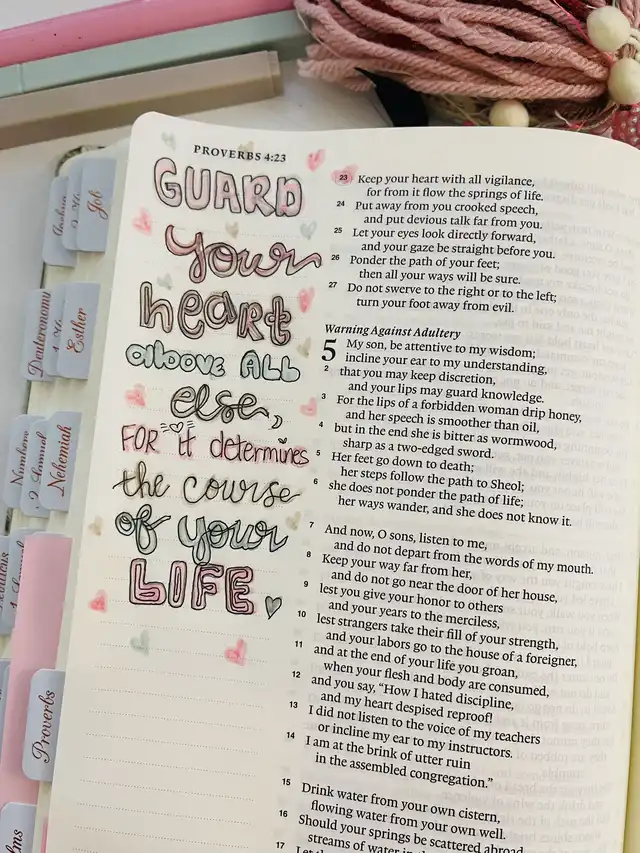 PROVERBS 4:23
GUARD
your
heart
above ALL
else,
FOR it determines
the course
of your
LIFE
23 Keep your heart with all vigilance,
for from it flow the springs of life.
24 Put away from you crooked speech,
and put devious talk far from you.
25 Let your eyes look directly forward,
and your gaze be straight before you.
26 Ponder the path of your feet;
then all your ways will be sure.
27 Do not swerve to the right or to the left;
turn your foot away from evil.
Warning Against Adultery
5 My son, be attentive to my wisdom;
incline your ear to my understanding,
2 that you may keep discretion,
and your lips may guard knowledge.
3 For the lips of a forbidden woman drip honey,
and her speech is smoother than oil,
4 but in the end she is bitter as wormwood,
sharp as a two-edged sword.
5 Her feet go down to death;
her steps follow the path to Sheol;
6 she does not ponder the path of life;
her ways wander, and she does not know it.
7 And now, O sons, listen to me,
and do not depart from the words of my mouth.
8 Keep your way far from her,
and do not go near the door of her house,
9 lest you give your honor to others
and your years to the merciless,
10 lest strangers take their fill of your strength,
and your labors go to the house of a foreigner,
11 and at the end of your life you groan,
when your flesh and body are consumed,
12 and you say, “How I hated discipline,
and my heart despised reproof!
13 I did not listen to the voice of my teachers
or incline my ear to my instructors.
14 I am at the brink of utter ruin
in the assembled congregation.”
15 Drink water from your own cistern,
flowing water from your own well.
16 Should your springs be scattered abroad,
streams of water in
17
Job
Joshua
Esther
Deuteronomy
Nehemiah
Numbers
Proverbs